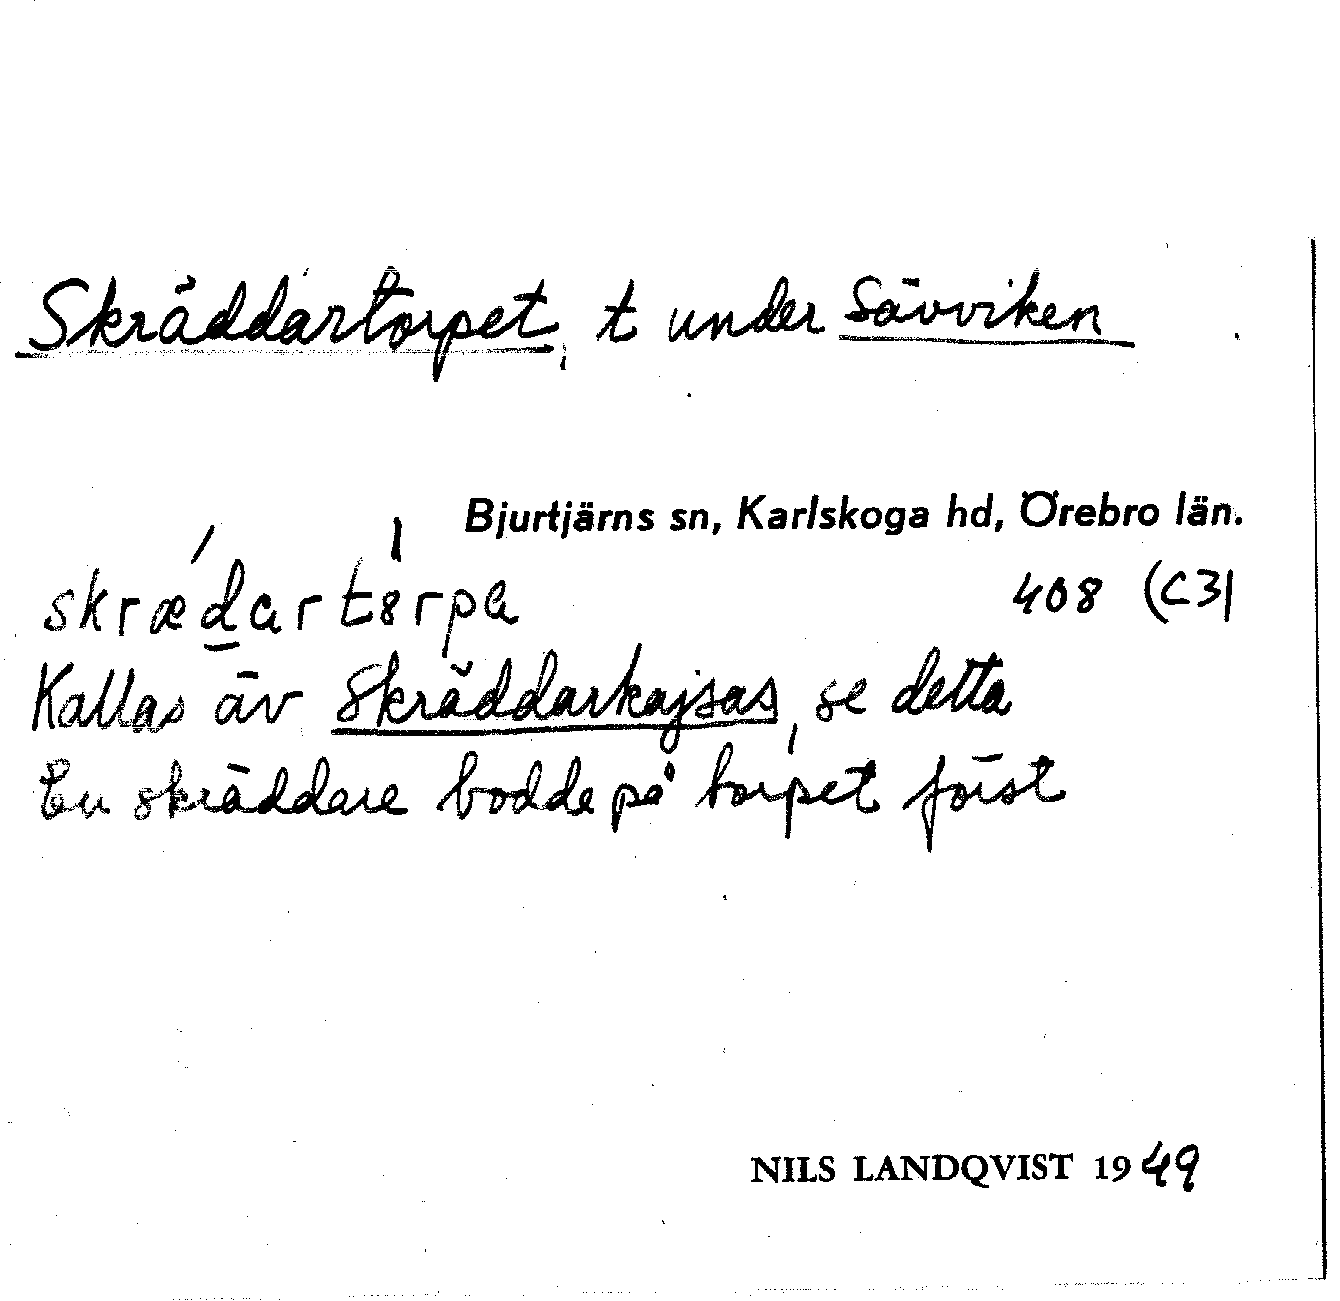 Skräddartorpet, t under Sävviken
Bjurtjärns sn, Karlskoga hd, Örebro län.
skrædartɵrpa
408 (C3)
Kallas äv Skräddarkajsas, se detta
En skräddare bodde på torpet först
NILS LANDQVIST 1949